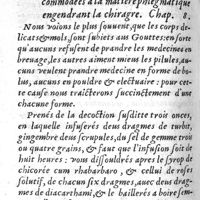 commodees a la matiere phlegmatique
engendrant la chiragre. Chap. 8.
Nous voïons le plus souuent, que les corps de-
licats & mols, sont subiets aus Gouttes: en sorte
qu'aucuns refusent de prandre les medecines en
breuuage, les autres aiment mieus les pilules, au-
cuns veulent prandre medecine en forme de bo-
lus, aucuns en poudre, & electuaire: pour ce-
ste cause nous traiterons succinctement d'une
chacune forme.
Prenés de la decoction susditte trois onces,
en laquelle infuserés deus dragmes de turbit,
gingembre deus scrupules, du sel de gemme trois
ou quatre grains, & faut que l'infusion soit de
huit heures: vous dissoudrés apres le syrop de
chicorée cum rhabarbaro, & celui de roses
solutif, de chacun six dragmes, auec deus drag-
mes de diacarthami, & le baillerés a boire sem-